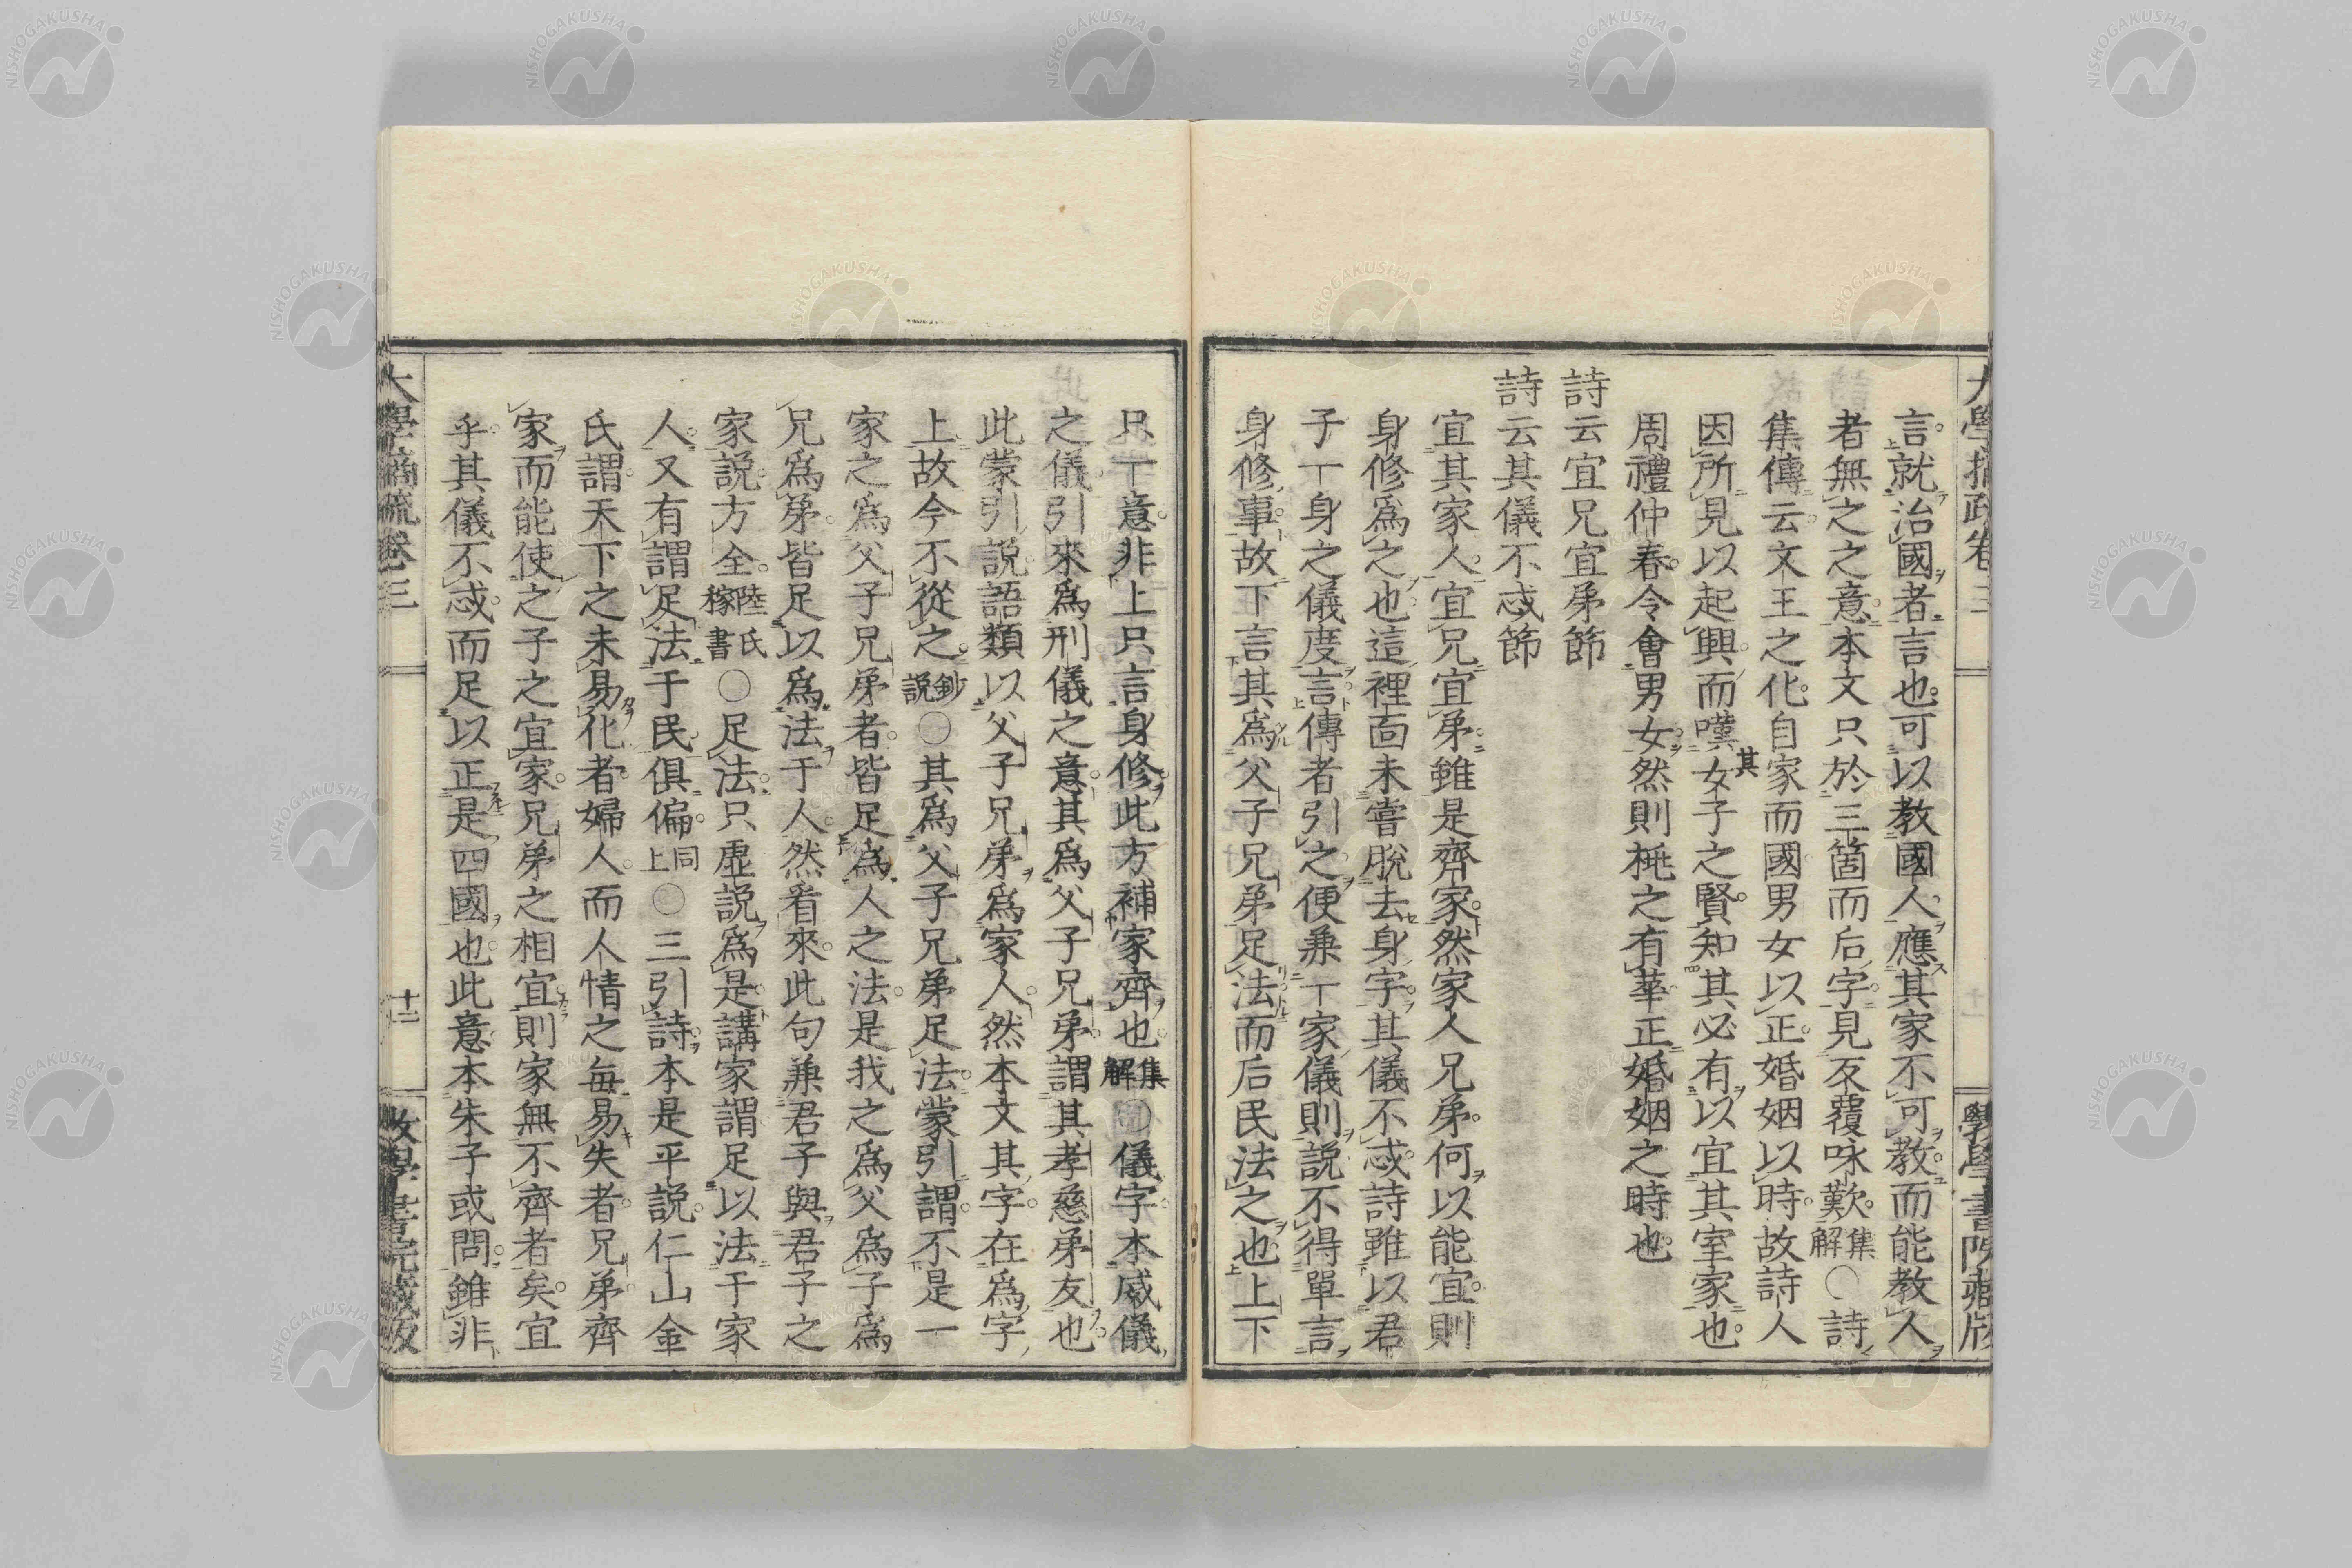 言就治國者言也可以教國人應其家不可教而能教人
者無之之意本文只於三箇而后字見反覆咏歎集解○詩
集傳云文王之化自家而國男女以正婚姻以時故詩人
因所見以起興而嘆其女子之賢知其必有以宜其室家也
周禮仲春令會男女然則桃之有華正婚姻之時也
詩云宜兄宜弟節
詩云其儀不忒節
宜其家人宜兄宜弟雖是齊家然家人兄弟何以能宜則
身修爲之也這裡面未嘗脫去身字其儀不忒詩雖以君
子一身之儀度言傳者引之便兼一家儀則説不得單言
身修事故下言其爲父子兄弟足法而后民法之也上下
只一意非上只言身修此方補家齊也集解○儀字本威儀
之儀引來爲刑儀之意其爲父子兄弟謂其孝慈弟友也
此蒙引説語類以父子兄弟爲家人然本文其字在爲字
上故今不從之鈔説○其爲父子兄弟足法蒙引謂不是一
家之爲父子兄弟者皆足爲人之法是我之爲父爲子爲
兄爲弟皆足以爲法于人然看來此句兼君子與君子之
家説方全陸氏稼書○足法只虛説爲是講家謂足以法于家
人又有謂足法于民俱偏同上○三引詩本是平説仁山金
氏謂天下之未易化者婦人而人情之每易失者兄弟齊
家而能使之子之宜家兄弟之相宜則家無不齊者矣宜
乎其儀不忒而足以正是四國也此意本朱子或問雖非
大學摘疏卷三
十二
斅學書院藏版